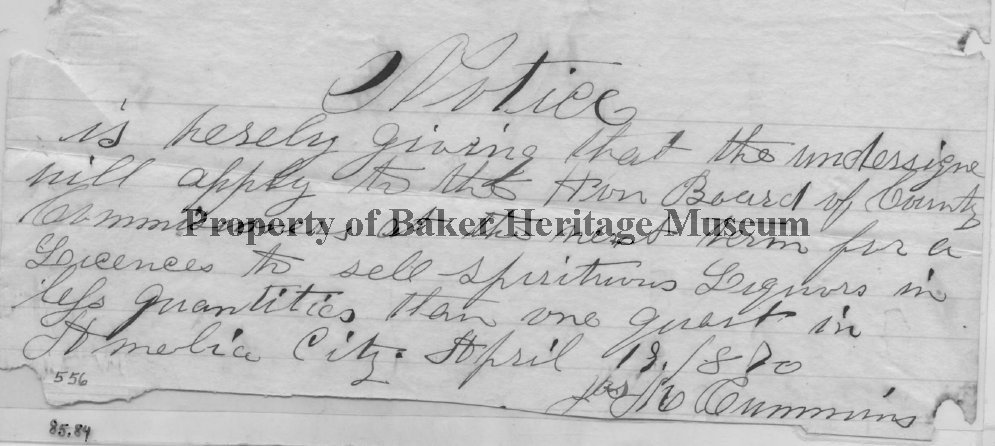 Notice
is hereby giving that the undersigne
will apply to the Hon Board of County
Commissioners at the next term for a
Property of Baker Heritage Museum
Licences to sell spirituous Liquors in
less quantities than one quart in
Amelia City. April 19, 1870
Jas Cummins
556
85.84